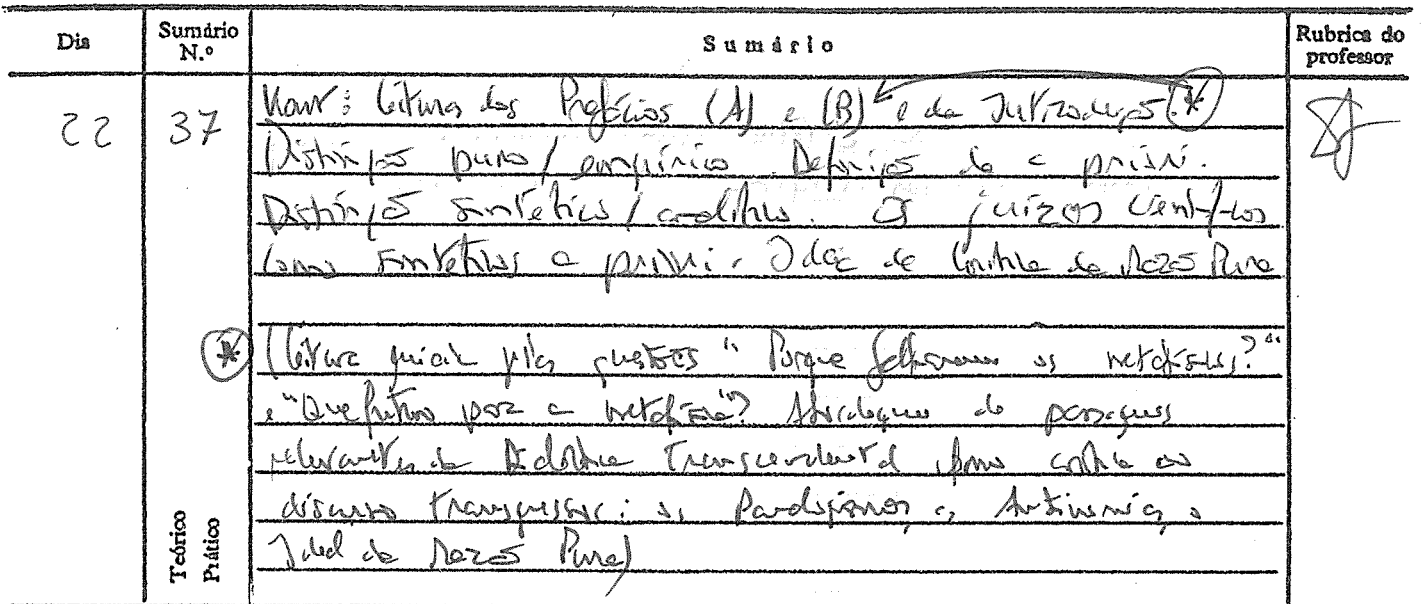 Dia
Sumário N.º
Sumário
Rubrica do professor
22
37
Kant: leitura dos Prefácios (A) e (B) e da Introdução. *
Distinção puro / empírico. Definição de a priori.
Distinção sintético / analítico. Os juízos científicos
como sintéticos a priori. Ideia de Crítica da Razão Pura
* (leitura guiada pelas questões "Porque falharam os metafísicos?"
e "Que futuro para a metafísica"? Abordagem de passagens
relevantes da Dialéctica Transcendental como crítica ao
discurso transgressor: os Paralogismos, as Antinomias, o
Ideal da Razão Pura)
Teórico
Prático